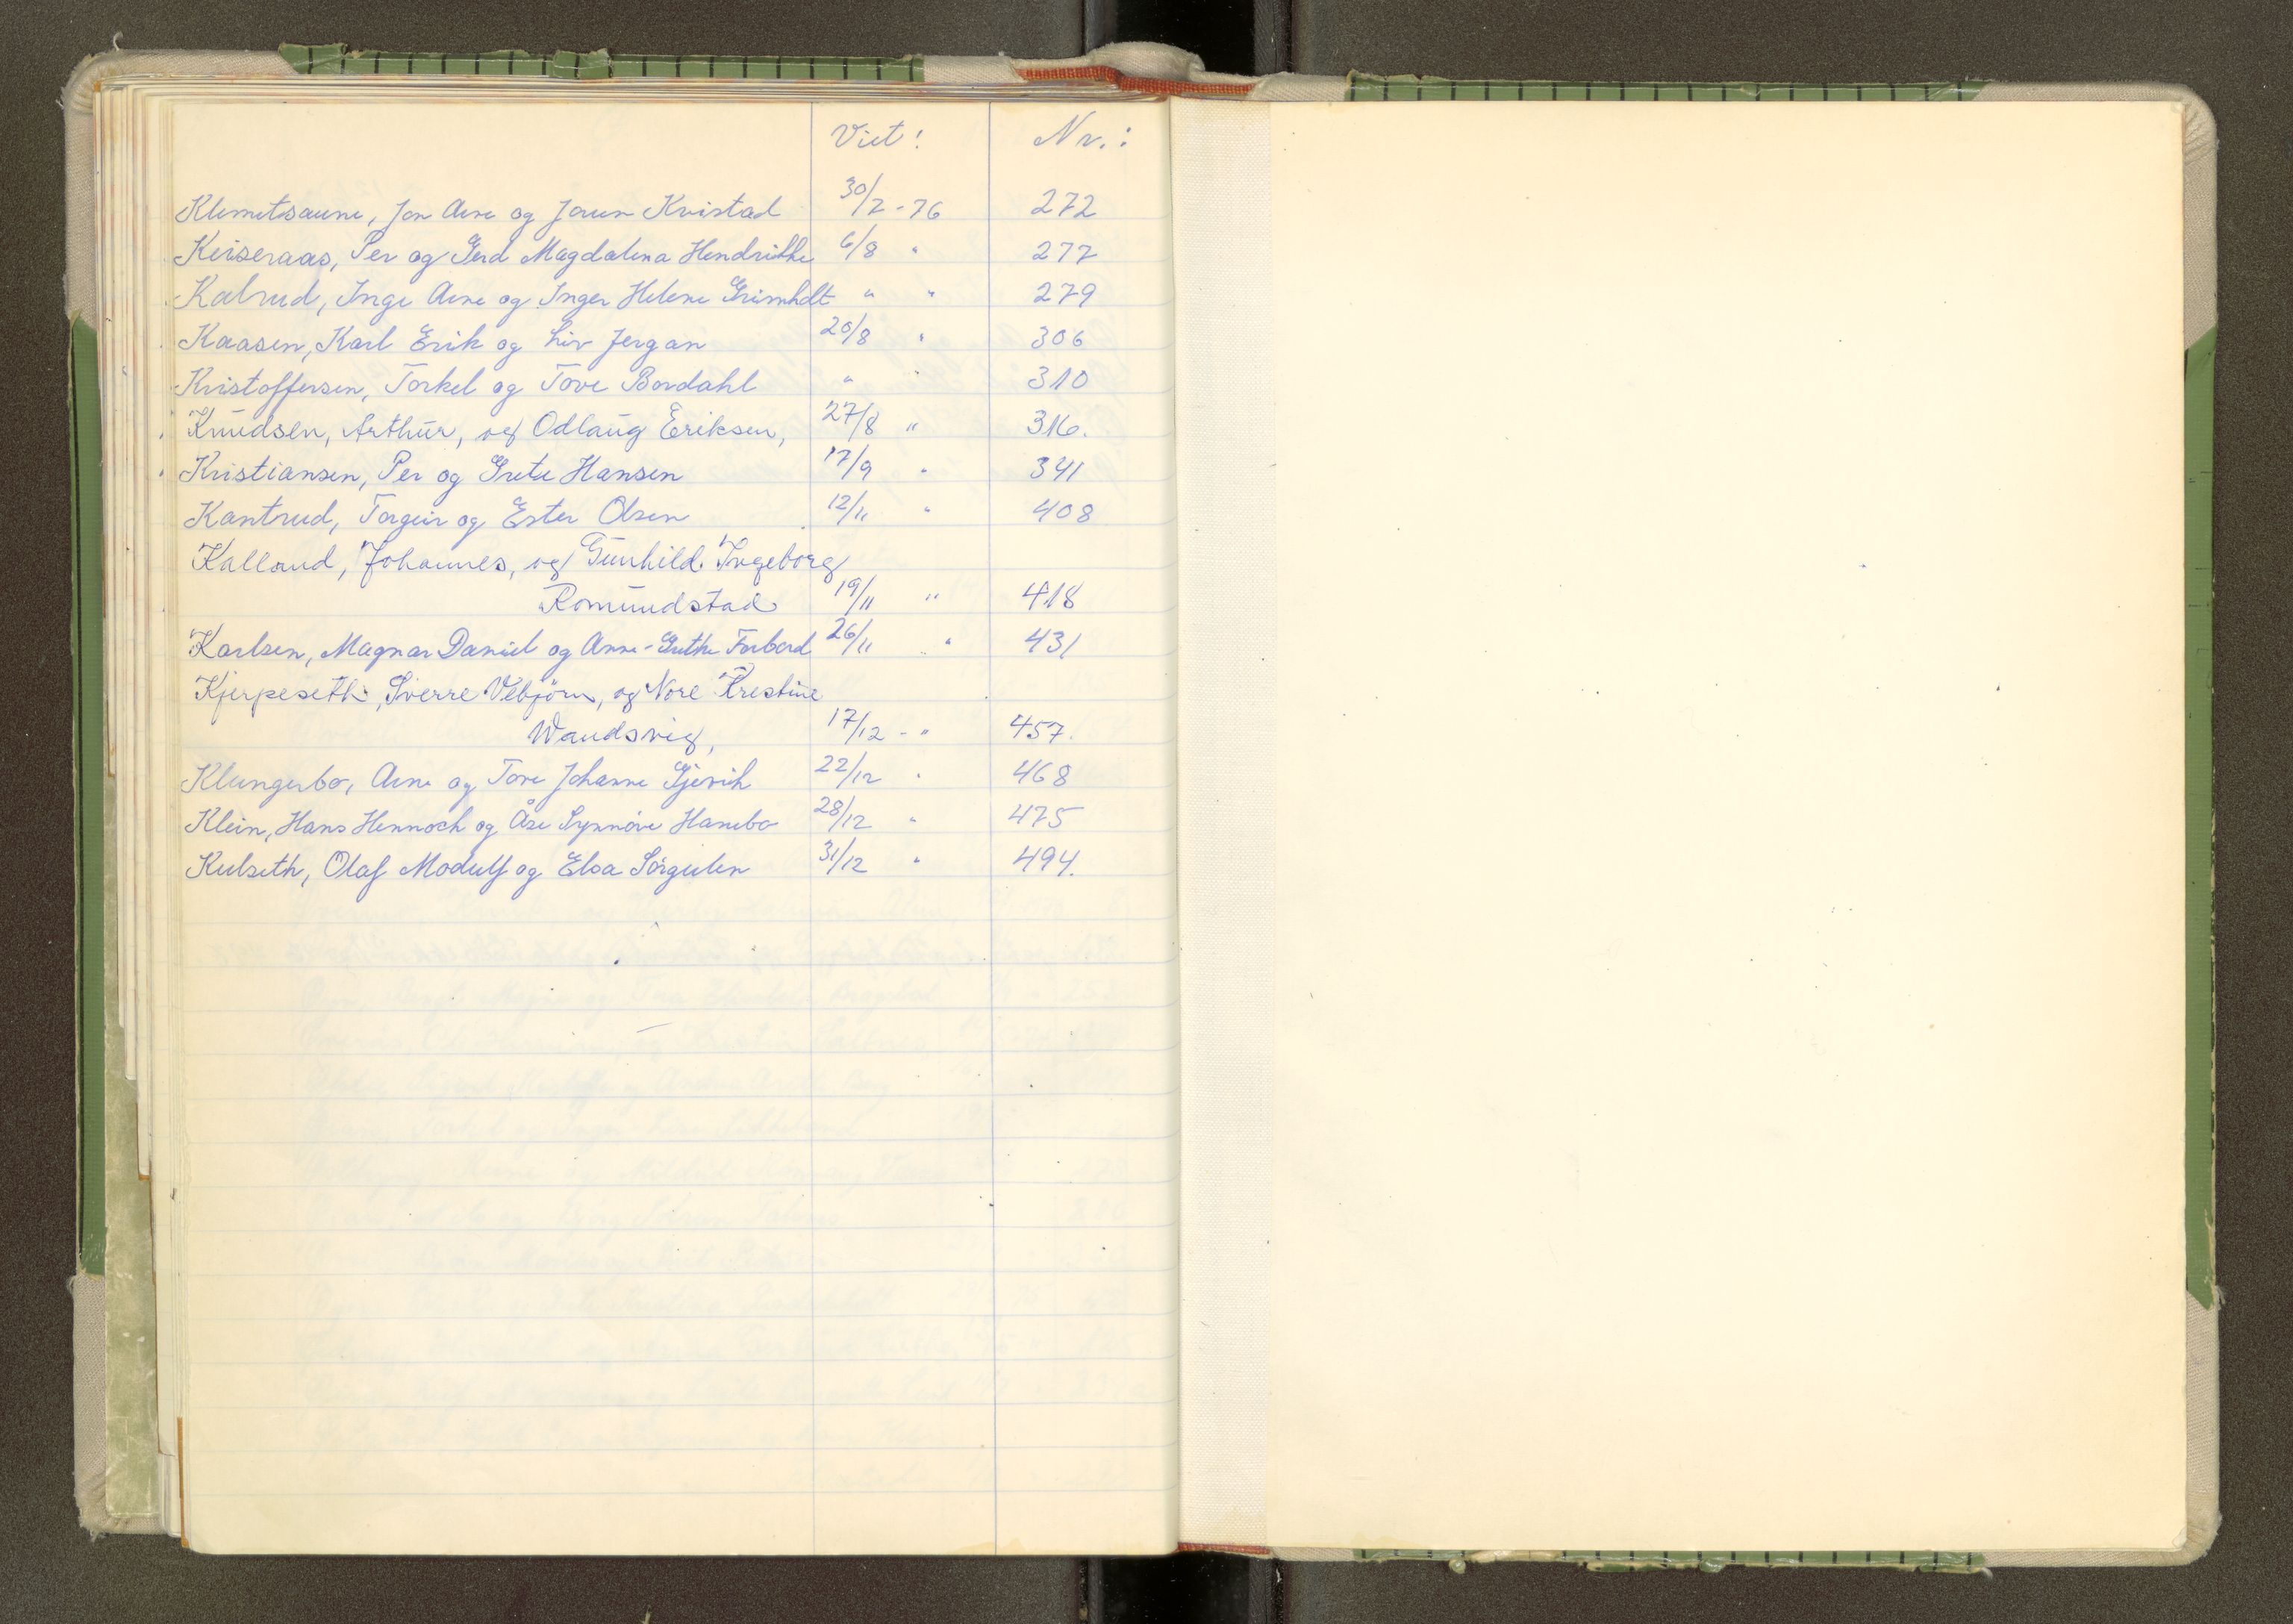 Viet: Nr.:
Klemetsaune, Jon Arne og Jorun Kvistad 30/7-76 272
Keiseraas, Per og Gerd Magdalena Hendrikke 6/8 " 277
Kalrud, Inge Arne og Inger Helene Grimholt " " 279
Kaasen, Karl Erik og Liv Jergan 20/8 " 306
Kristoffersen, Torkel og Tove Bordahl " 310
Knudsen, Arthur, og Odlaug Eriksen, 27/8 " 316.
Kristiansen, Per og Grete Hansen 17/9 " 341
Kantrud, Torgeir og Ester Olsen 12/11 " 408
Kalland, Johannes, og Gunhild Ingeborg
Romundstad 19/11 " 418
Karlsen, Magnar Daniel og Anne-Grethe Forbord 26/11 " 431
Kjerpeseth, Sverre Vebjörn, og Nore Krestine
Wandsvig, 17/12 - " 457.
Klungerbo, Arne og Tove Johanne Gjervik 22/12 " 468
Klein, Hans Hennoch og Åse Synnöve Hanebo 28/12 " 475
Kulseth, Olaf Modulf og Elsa Sörgulen 31/12 " 494.